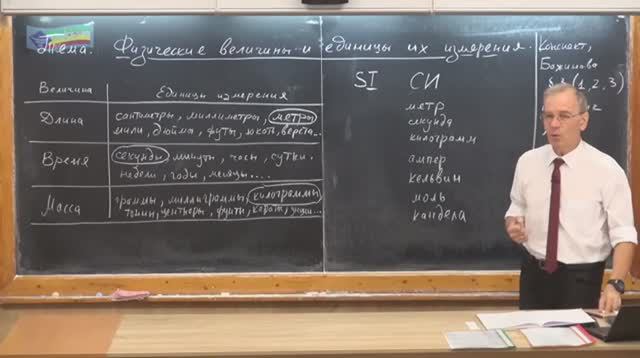 Тема. Физические величины и единицы их измерения.
Величина Единицы измерения
Длина сантиметры, миллиметры, метры
мили, дюймы, футы, локоть, верста...
Время секунды минуты, часы, сутки.
недели, годы, месяцы....
Масса граммы, миллиграммы, килограммы
тонны, центнеры, фунты, карат, унции...
SI СИ
метр
секунда
килограмм
ампер
кельвин
моль
кандела
Конспект,
Божинова
(1, 2, 3)